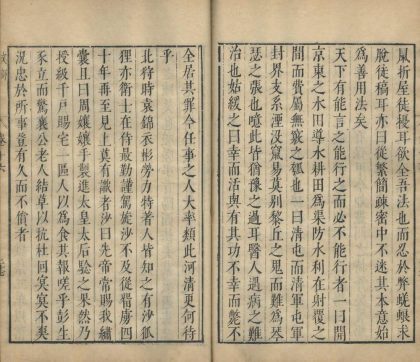 鳳折屋徒耗耳欲全吾法也而忍於弊蜈蜾求
脫徒稿耳亦曰從繁簡疎密中不迷其本意始
爲善用法矣
天下有能言之能行之而必不能行者一曰開
京東之水田導水耕田爲渠防水利在射覆之
間而費屬無竅之瓠也一曰清屯而清軍屯軍
封界支系湮沒氣易莫別黎丘之鬼而難爲琴
瑟之張也噫此皆猶豫之過耳醫人遇病之難
治也姑緩之曰幸而活與有其功不幸而斃不
全居其罪今任事之人大率類此河清更何待
乎
北狩時袁錦衣彬勞力持著人皆知之有沙狐
狸亦衛士在侍最勤謹駕旋沙不及從猶虜四
十年再至見上莫有識者沙曰先帝常賜我繡
囊且曰周孃孃手製進太皇太后驗之果然乃
授級千戶賜宅一區人以爲食其報嗟乎彭生
豕立而驚襄公老人結草以抗杜回冥冥不爽
況忠於所事豈有久而不償者